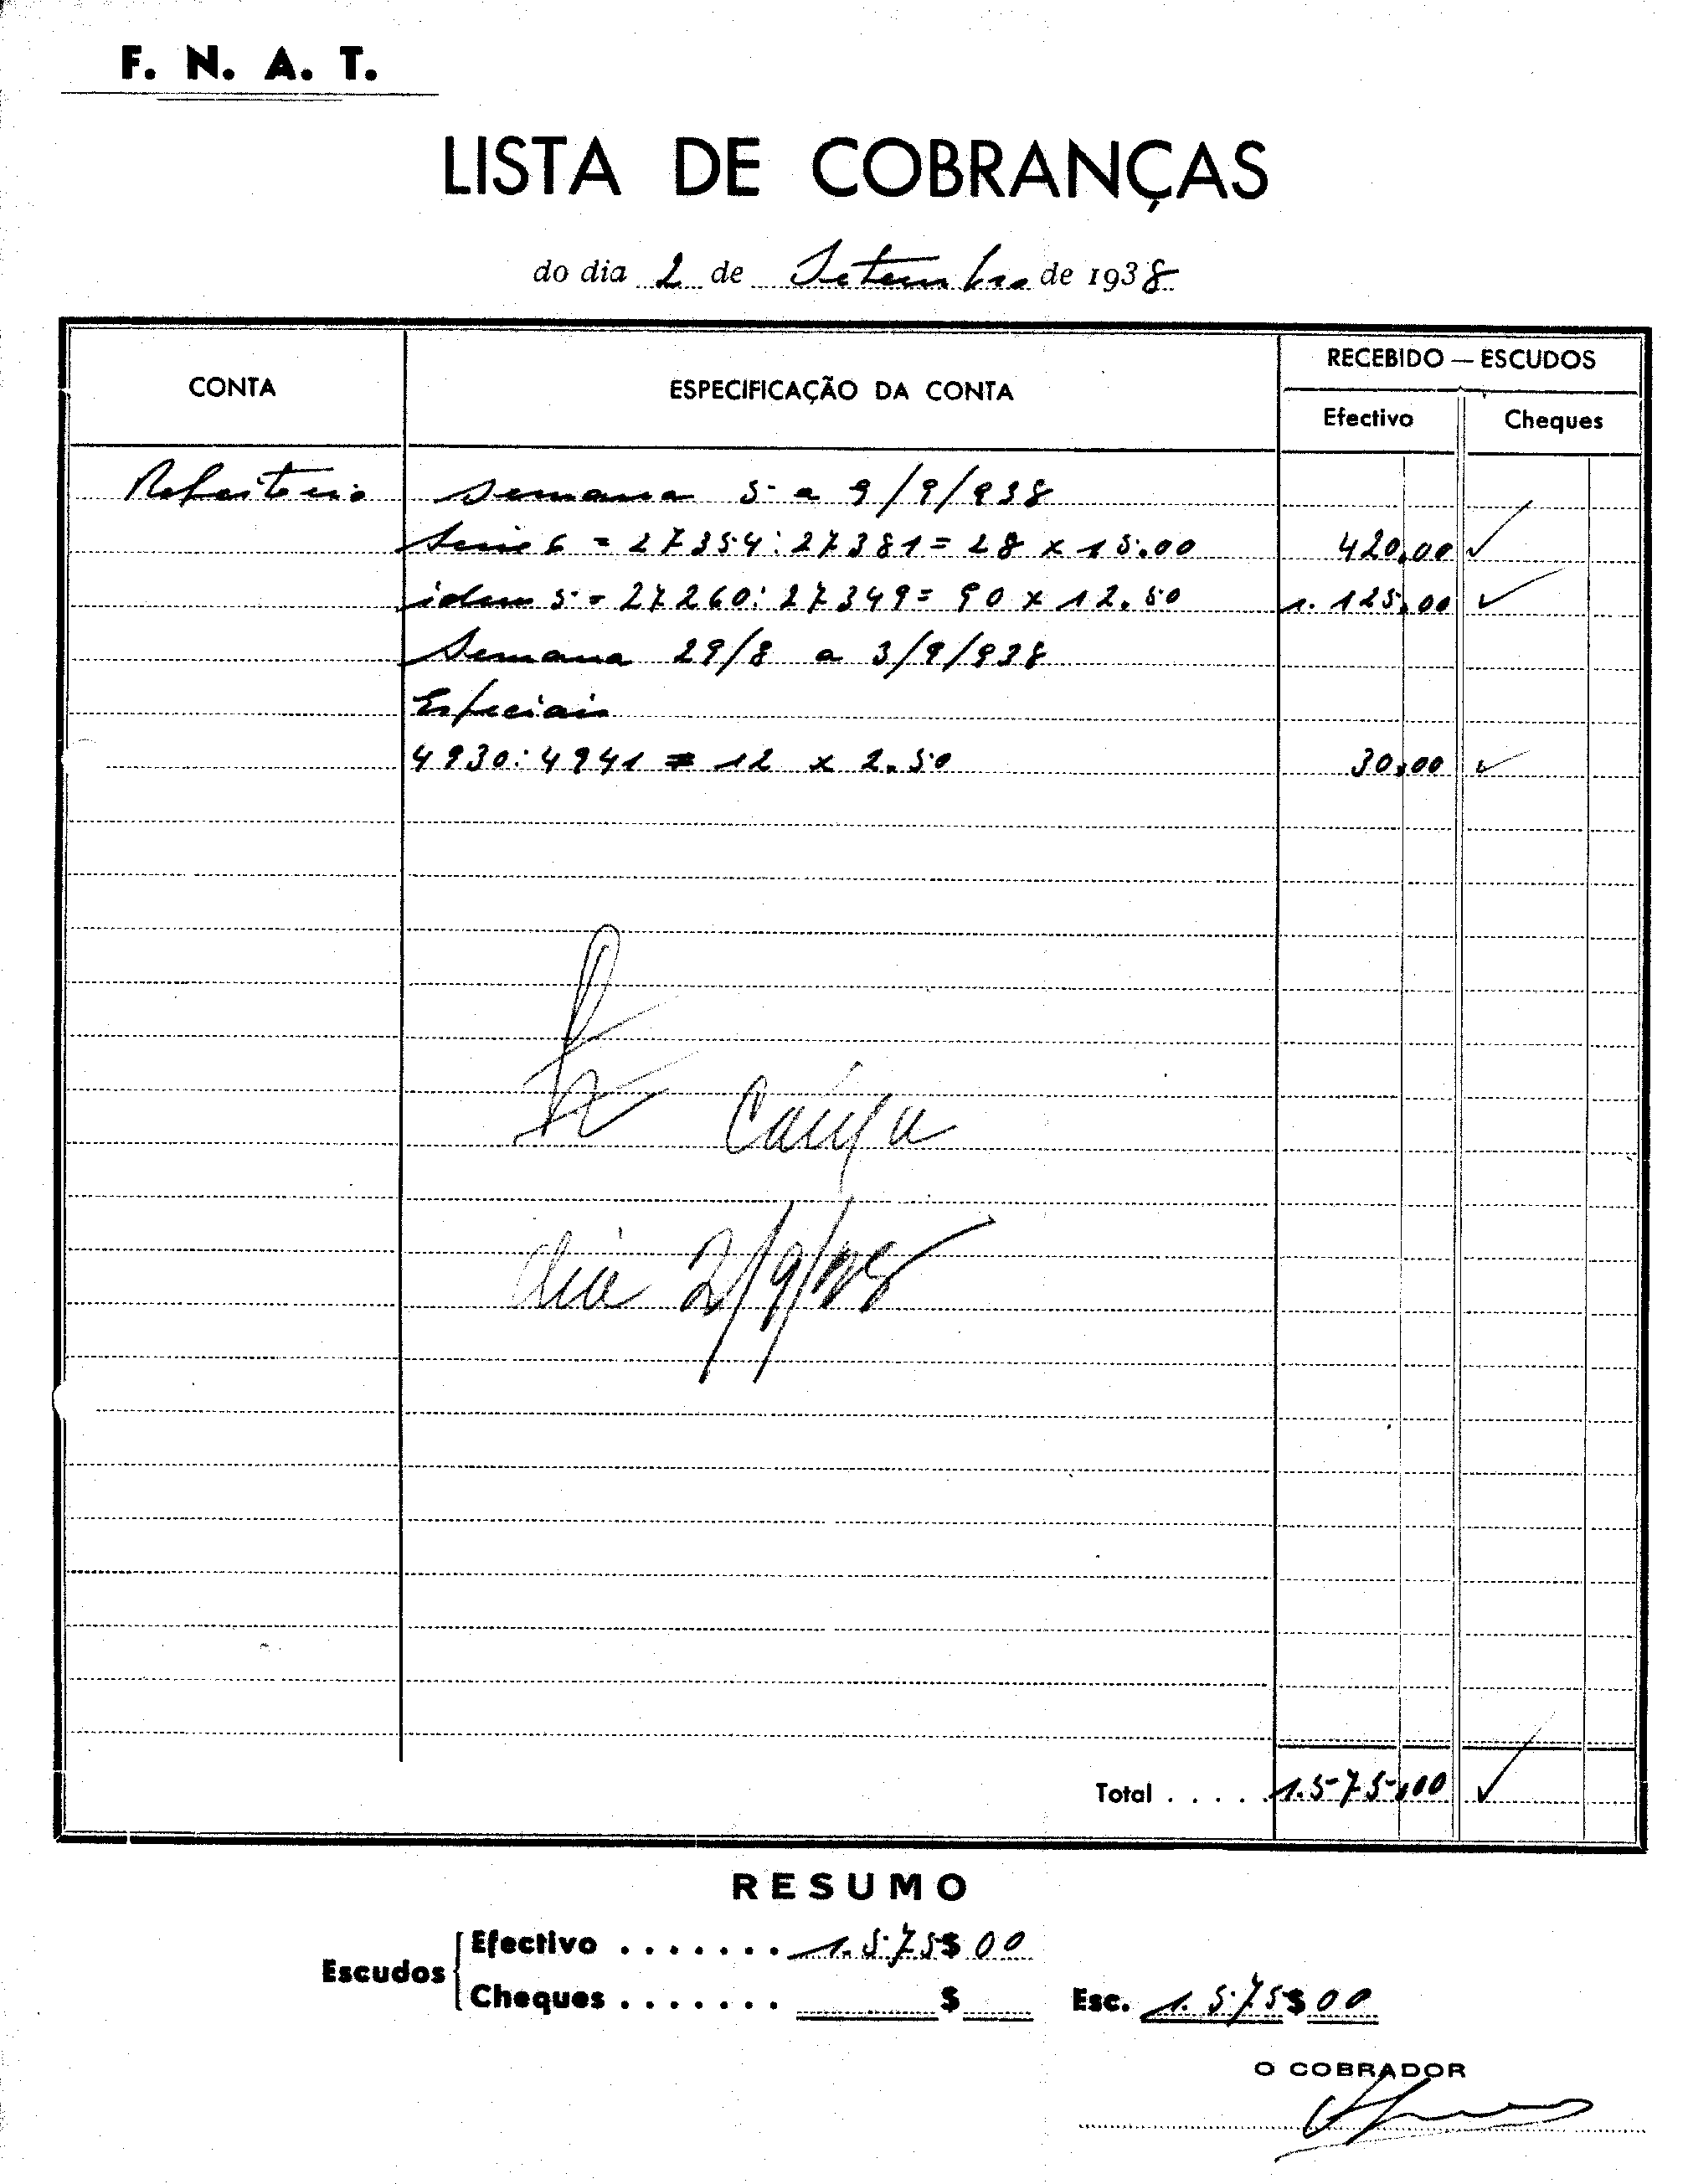 F. N. A. T.
LISTA DE COBRANÇAS
do dia 2 de Setembro de 1938
CONTA
ESPECIFICAÇÃO DA CONTA
RECEBIDO — ESCUDOS
Efectivo
Cheques
Refeitorio semana 5 a 9/9/938
Serie 6 = 27354:27381 = 28 x 15.00 420,00
idem 5 = 27260:27349 = 90 x 12.50 1.125,00
Semana 29/8 a 3/9/938
Especiais
4930:4941 = 12 x 2.50 30,00
Caixa
dia 2/9/938
Total . . . . . 1.575,00
RESUMO
Escudos
Efectivo ....... 1.575$00
Cheques ....... $
Esc. 1.575$00
O COBRADOR